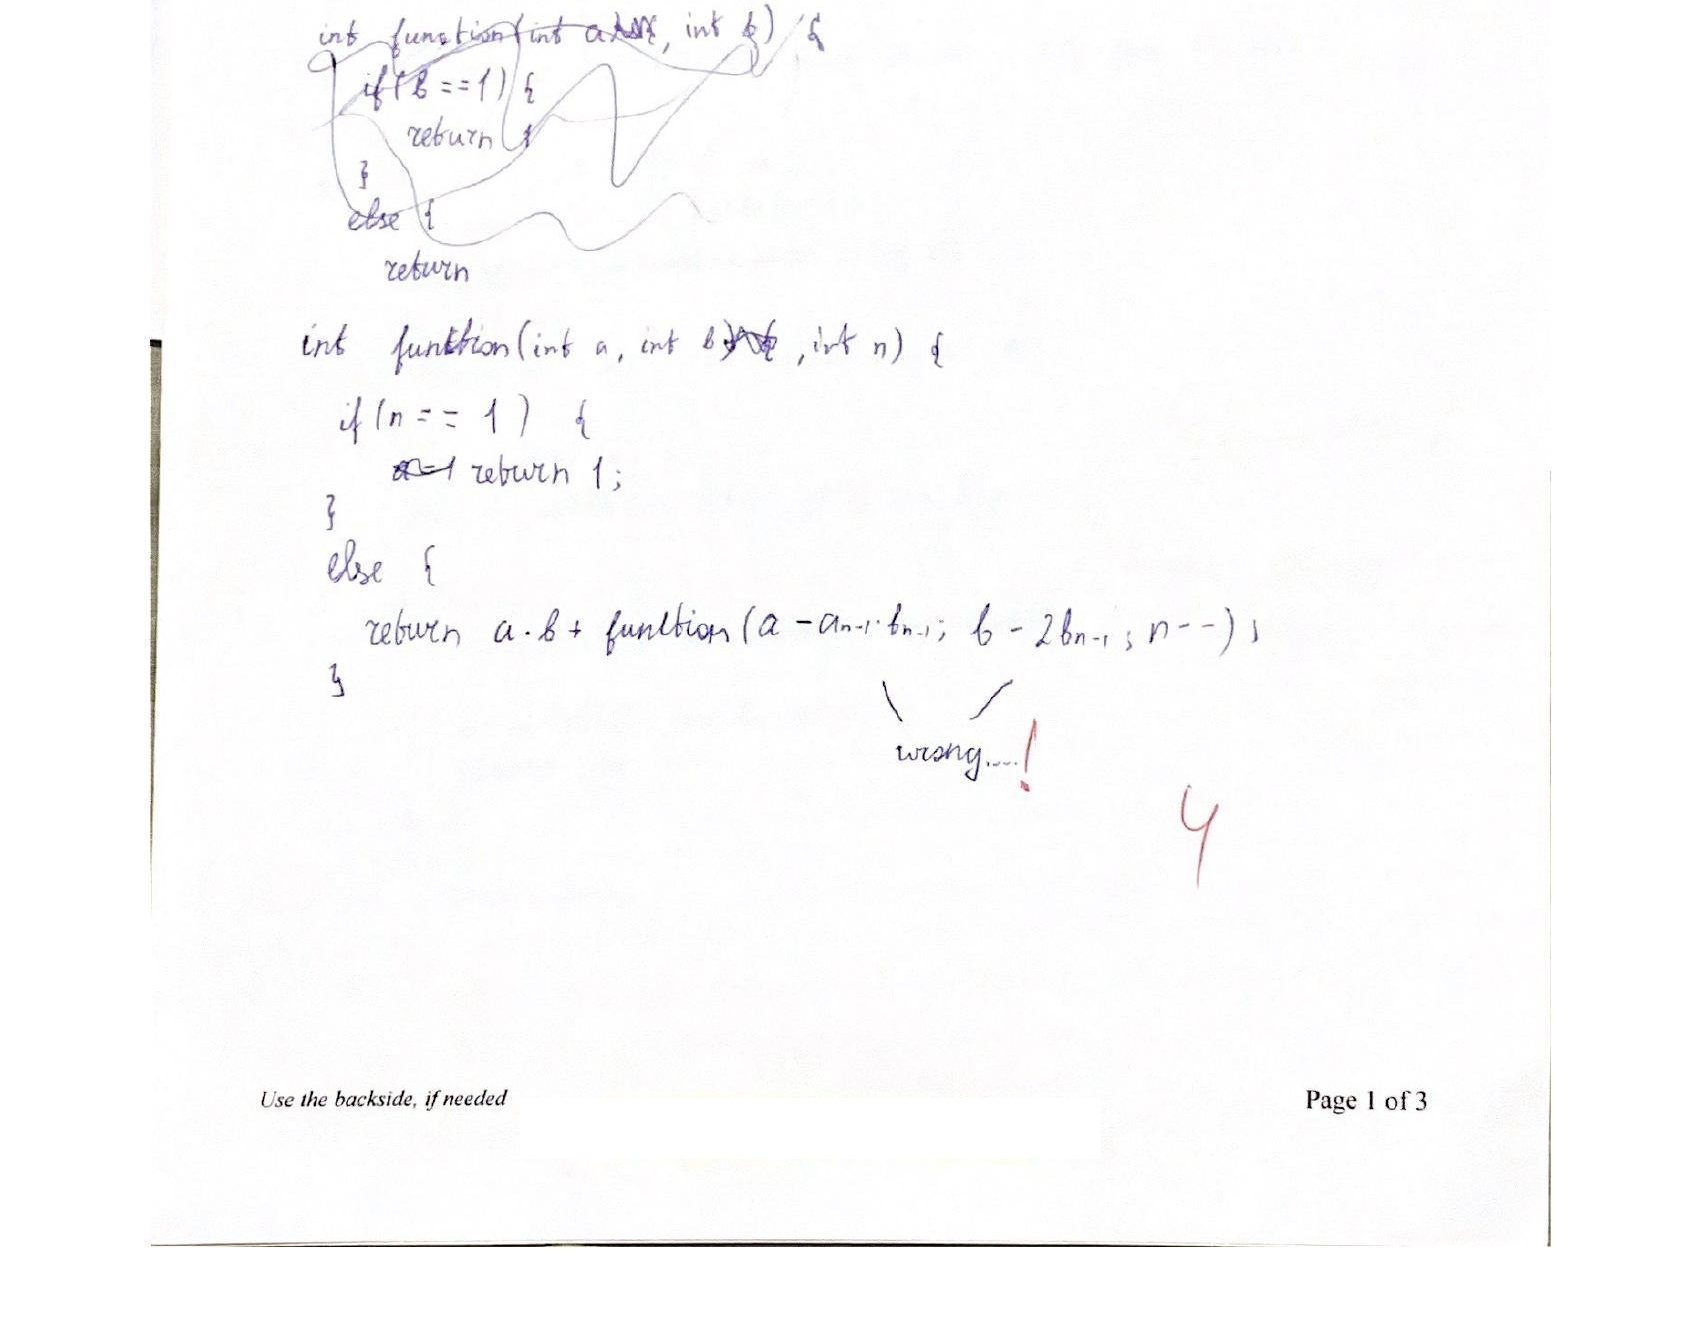 int function(int a, int b) {
if(b==1) {
return
}
else {
return
int function(int a, int b, int n) {
if(n == 1) {
return 1;
}
else {
return a·b + function(a - aₙ₋₁·bₙ₋₁; b - 2bₙ₋₁; n--);
}
wrong....!
4
Use the backside, if needed
Page 1 of 3